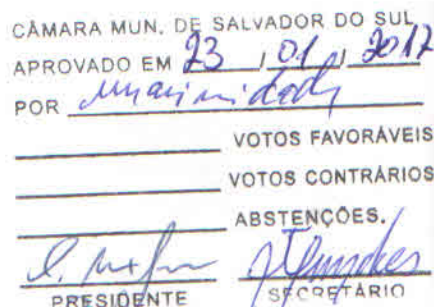 CÂMARA MUN. DE SALVADOR DO SUL
APROVADO EM 23 / 01 / 2017
POR unanimidade
VOTOS FAVORÁVEIS
VOTOS CONTRÁRIOS
ABSTENÇÕES.
PRESIDENTE SECRETÁRIO